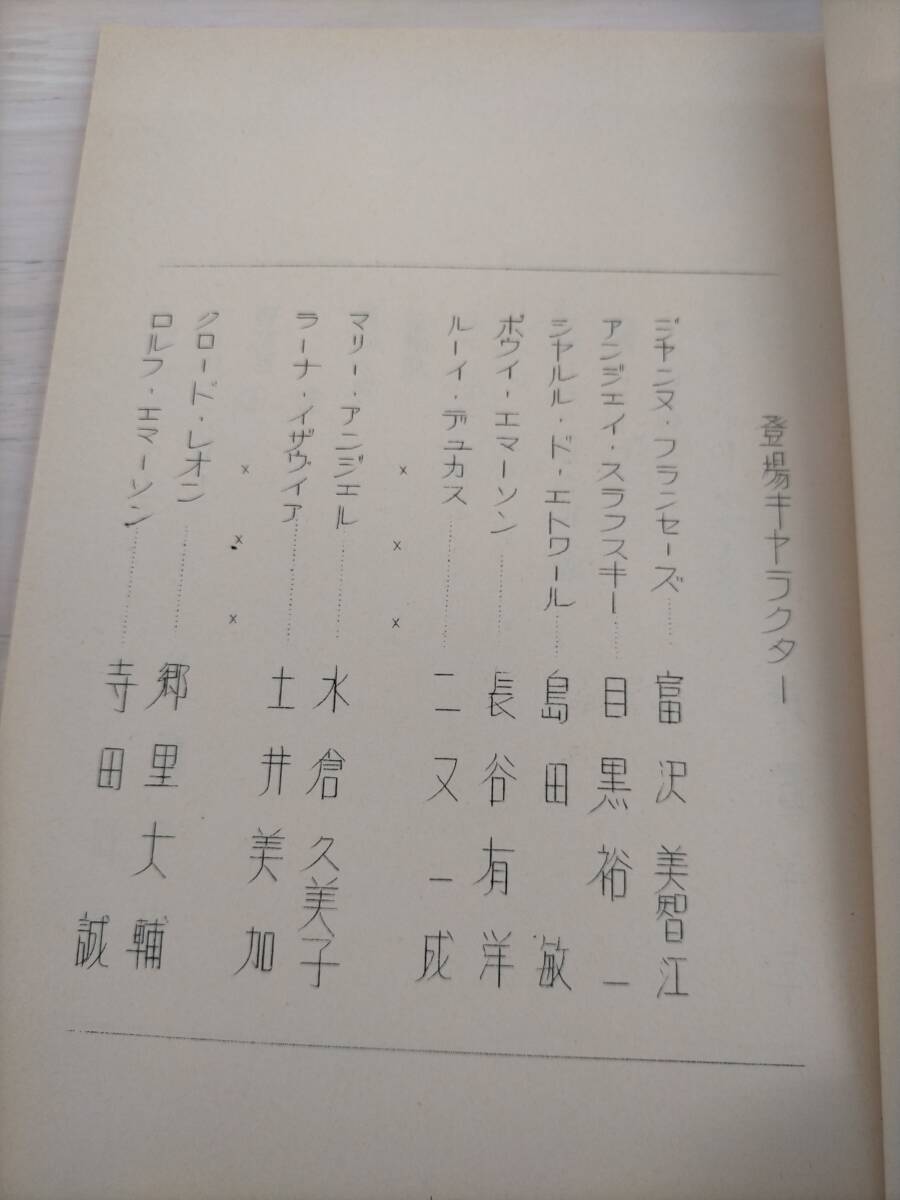 登場キャラクター
ジャンヌ・フランセーズ……富沢美智江
アンジェイ・スラフスキー……目黒裕一
シャルル・ド・エトワール……島田敏
ボウイ・エマーソン……長谷有洋
ルーイ・デュカス……二又一成
× × ×
マリー・アンジェル……水倉久美子
ラーナ・イザヴィア……土井美加
× × ×
クロード・レオン……郷里大輔
ロルフ・エマーソン……寺田誠